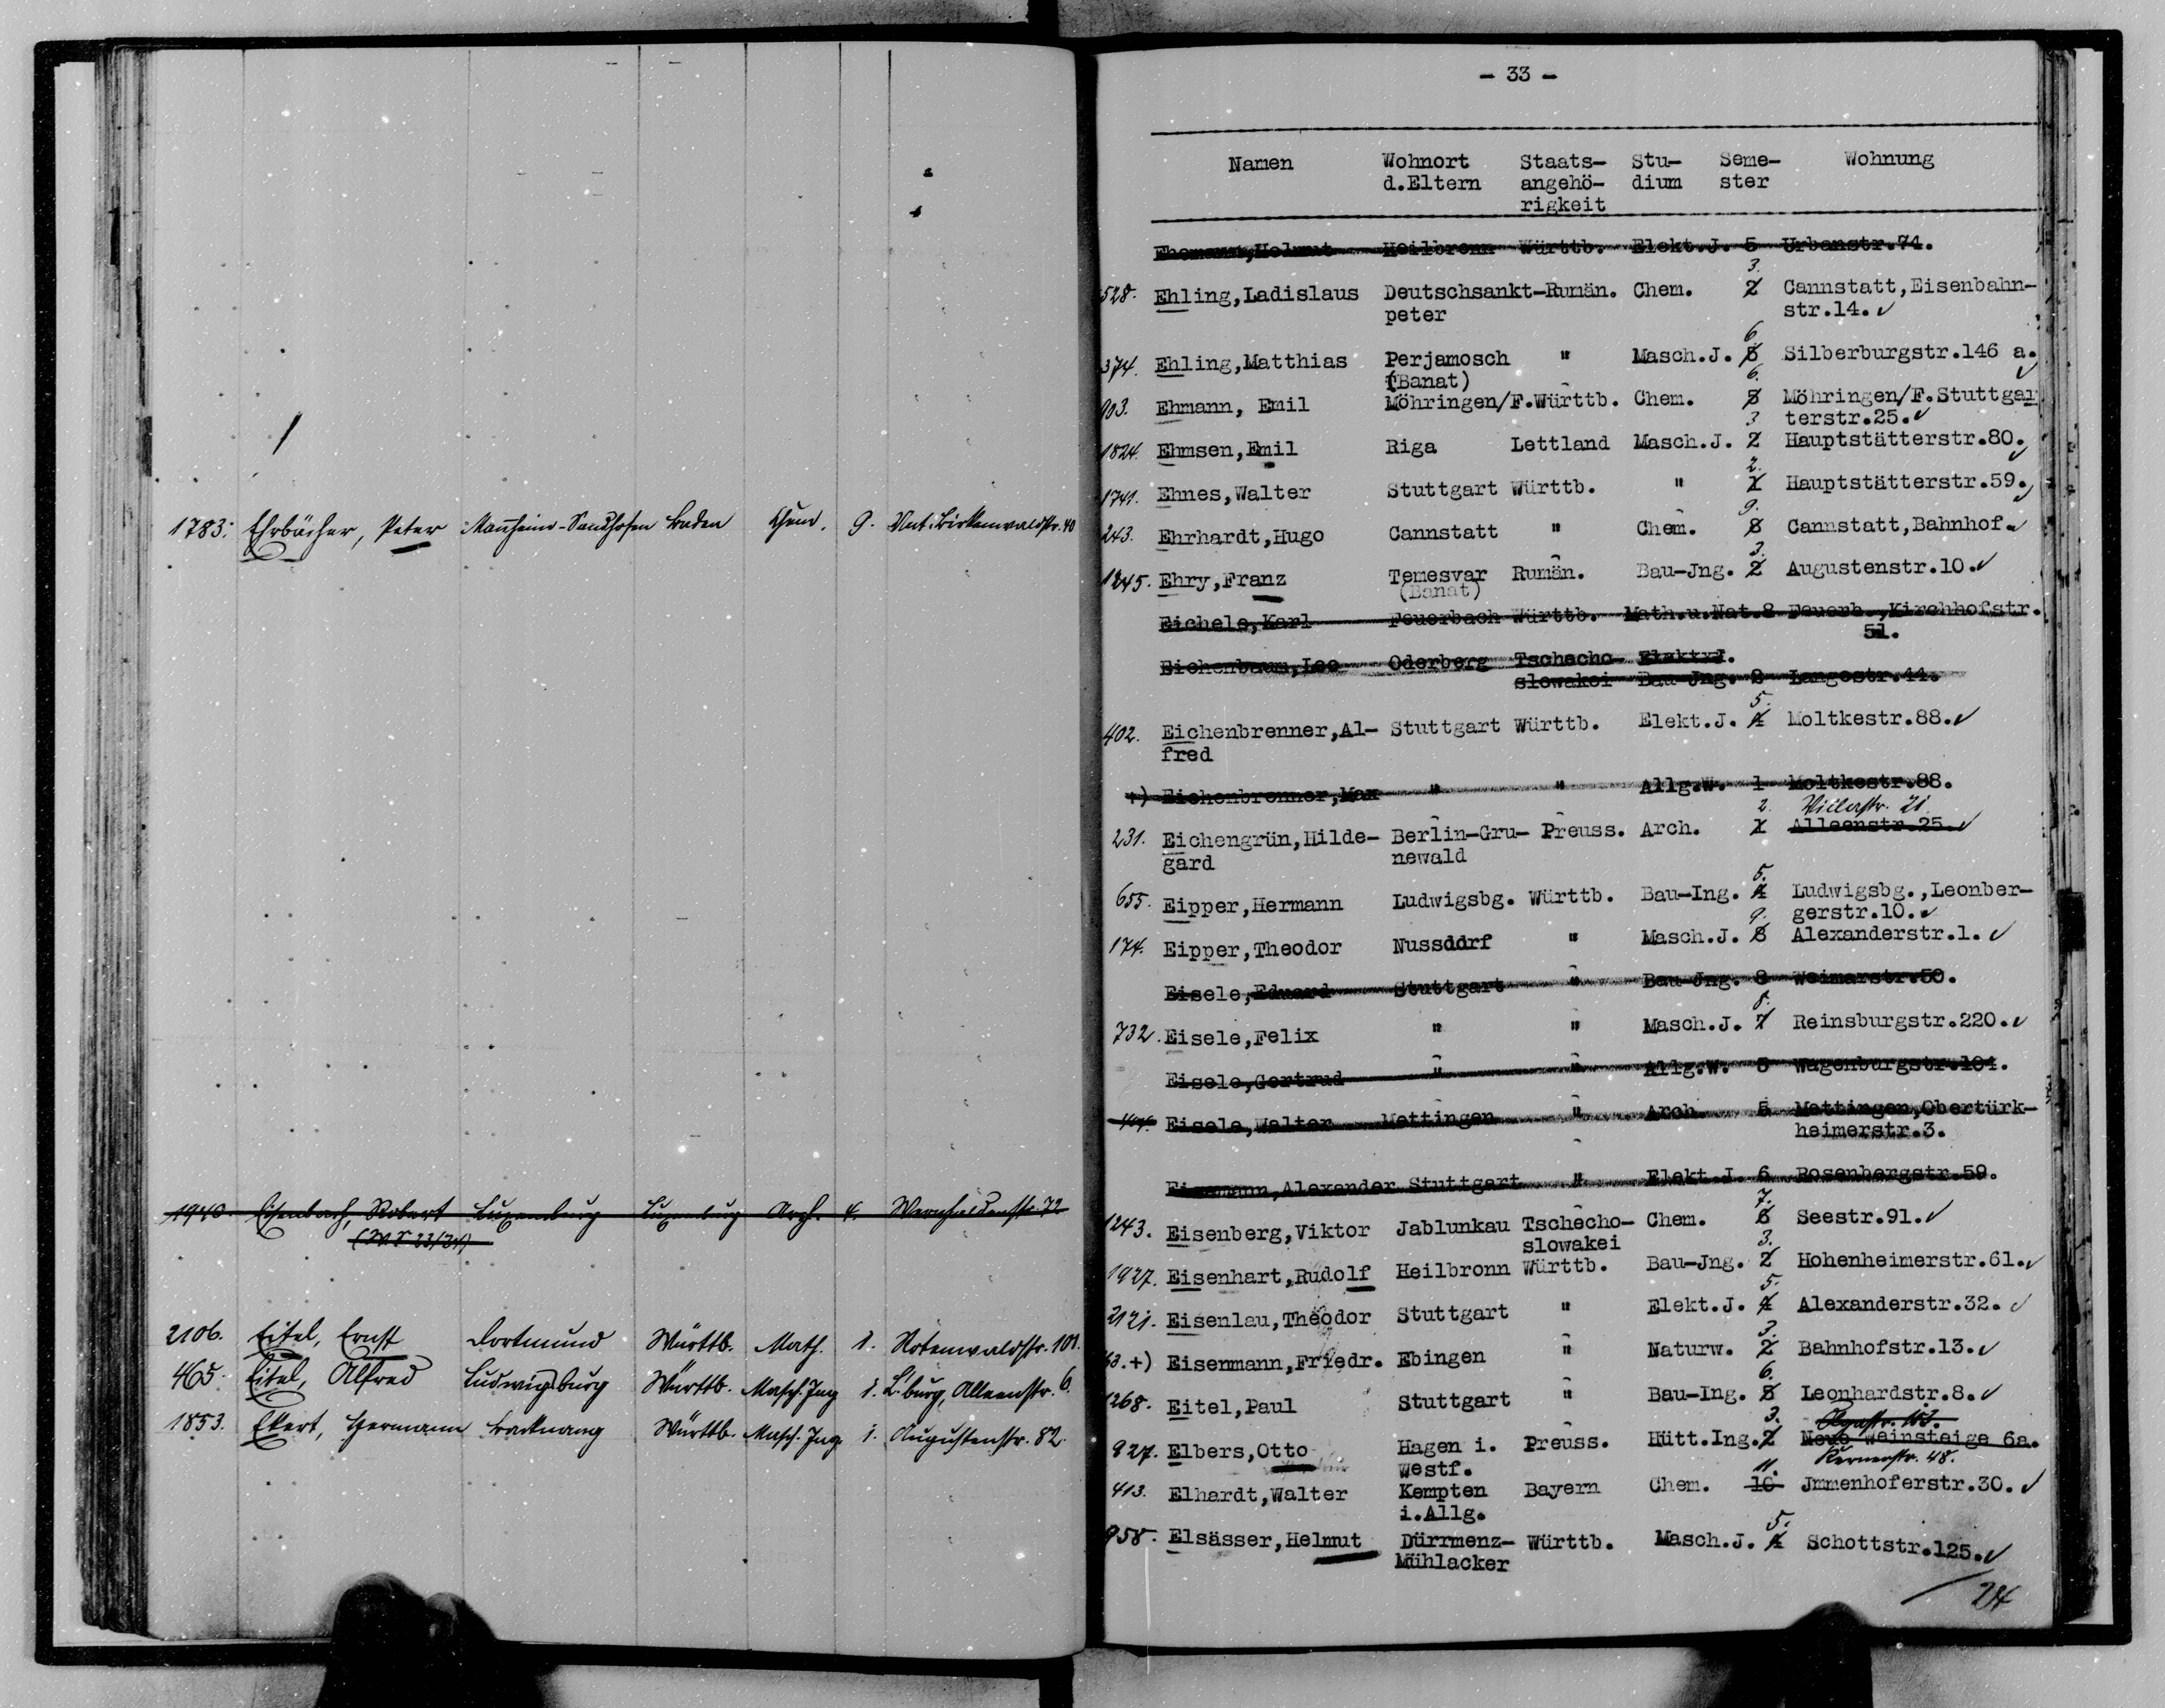 1783. Ehrbächer, Peter Mannheim-Sandhofen Baden Chem. 9. Unt. Birkenwaldstr. 40
1940. Eisenbach, Robert Luxemburg Luxemburg Arch. 4. 72
(W.S 23/24)
2106. Eitel, Ernst Dortmund Württb. Math. 1. Rotenwaldstr. 101.
465. Eitel, Alfred Ludwigsburg Württb. Masch. Ing 1. L.burg, Alleenstr. 6.
1853. Ekert, Hermann Backnang Württb. Masch. Ing. 1. Augustenstr. 82.
- 33 -
Namen Wohnort Staats- Stu- Seme- Wohnung
d.Eltern angehö- dium ster
rigkeit
Ehemann,Helmut Heilbronn Württb. Elekt.J. 5 Urbanstr.74.
3.
528. Ehling,Ladislaus Deutschsankt-Rumän. Chem. 2 Cannstatt,Eisenbahn-
peter str.14.
6
374. Ehling,Matthias Perjamosch " Masch.J. 5 Silberburgstr.146 a.
(Banat) 6.
903. Ehmann, Emil Möhringen/F.Württb. Chem. 5 Möhringen/F.Stuttgar
3 terstr.25.
1824. Ehmsen,Emil Riga Lettland Masch.J. 2 Hauptstätterstr.80.
2.
1741. Ehnes,Walter Stuttgart Württb. " 1 Hauptstätterstr.59.
9.
243. Ehrhardt,Hugo Cannstatt " Chem. 8 Cannstatt,Bahnhof.
3.
1245. Ehry,Franz Temesvar Rumän. Bau-Jng. 2 Augustenstr.10.
(Banat)
Eichele,Karl Feuerbach Württb. Math.u.Nat.8 Feuerb.,Kirchhofstr.
51.
Eichenbaum,Leo Oderberg Tschecho- Elekt.J.
slowakei Bau-Jng. 2 Langestr.11.
5.
402. Eichenbrenner,Al- Stuttgart Württb. Elekt.J. 4 Moltkestr.88.
fred
+) Eichenbrenner,Max " " Allg.W. 1 Moltkestr.88.
2. Villastr. 21.
231. Eichengrün,Hilde- Berlin-Gru- Preuss. Arch. 1 Alleenstr.25.
gard newald
5.
655. Eipper,Hermann Ludwigsbg. Württb. Bau-Ing. 4 Ludwigsbg.,Leonber-
9. gerstr.10.
174. Eipper,Theodor Nussddrf " Masch.J. 8 Alexanderstr.1.
Eisele,Eduard Stuttgart " Bau-Jng. 8 Weimarstr.50.
8.
732. Eisele,Felix " " Masch.J. 7 Reinsburgstr.220.
Eisele,Gertrud " " Allg.W. 5 Wagenburgstr.104.
Eisele,Walter Mettingen " Arch. 5 Mettingen,Obertürk-
heimerstr.3.
Eisenmann,Alexander Stuttgart " Elekt.J. 6 Rosenbergstr.59.
7.
1243. Eisenberg,Viktor Jablunkau Tschecho- Chem. 6 Seestr.91.
slowakei 3.
1927. Eisenhart,Rudolf Heilbronn Württb. Bau-Jng. 2 Hohenheimerstr.61.
5.
2121. Eisenlau,Theodor Stuttgart " Elekt.J. 4 Alexanderstr.32.
3.
63.+) Eisenmann,Friedr. Ebingen " Naturw. 2 Bahnhofstr.13.
6.
1268. Eitel,Paul Stuttgart " Bau-Ing. 5 Leonhardstr.8.
3. Olgastr. 113.
927. Elbers,Otto Hagen i. Preuss. Hütt.Ing.2 Neue Weinsteige 6a.
Westf. 11. Kernerstr. 48.
413. Elhardt,Walter Kempten Bayern Chem. 10 Jmmenhoferstr.30.
i.Allg.
5.
958. Elsässer,Helmut Dürrmenz- Württb. Masch.J. 4 Schottstr.125.
Mühlacker
24